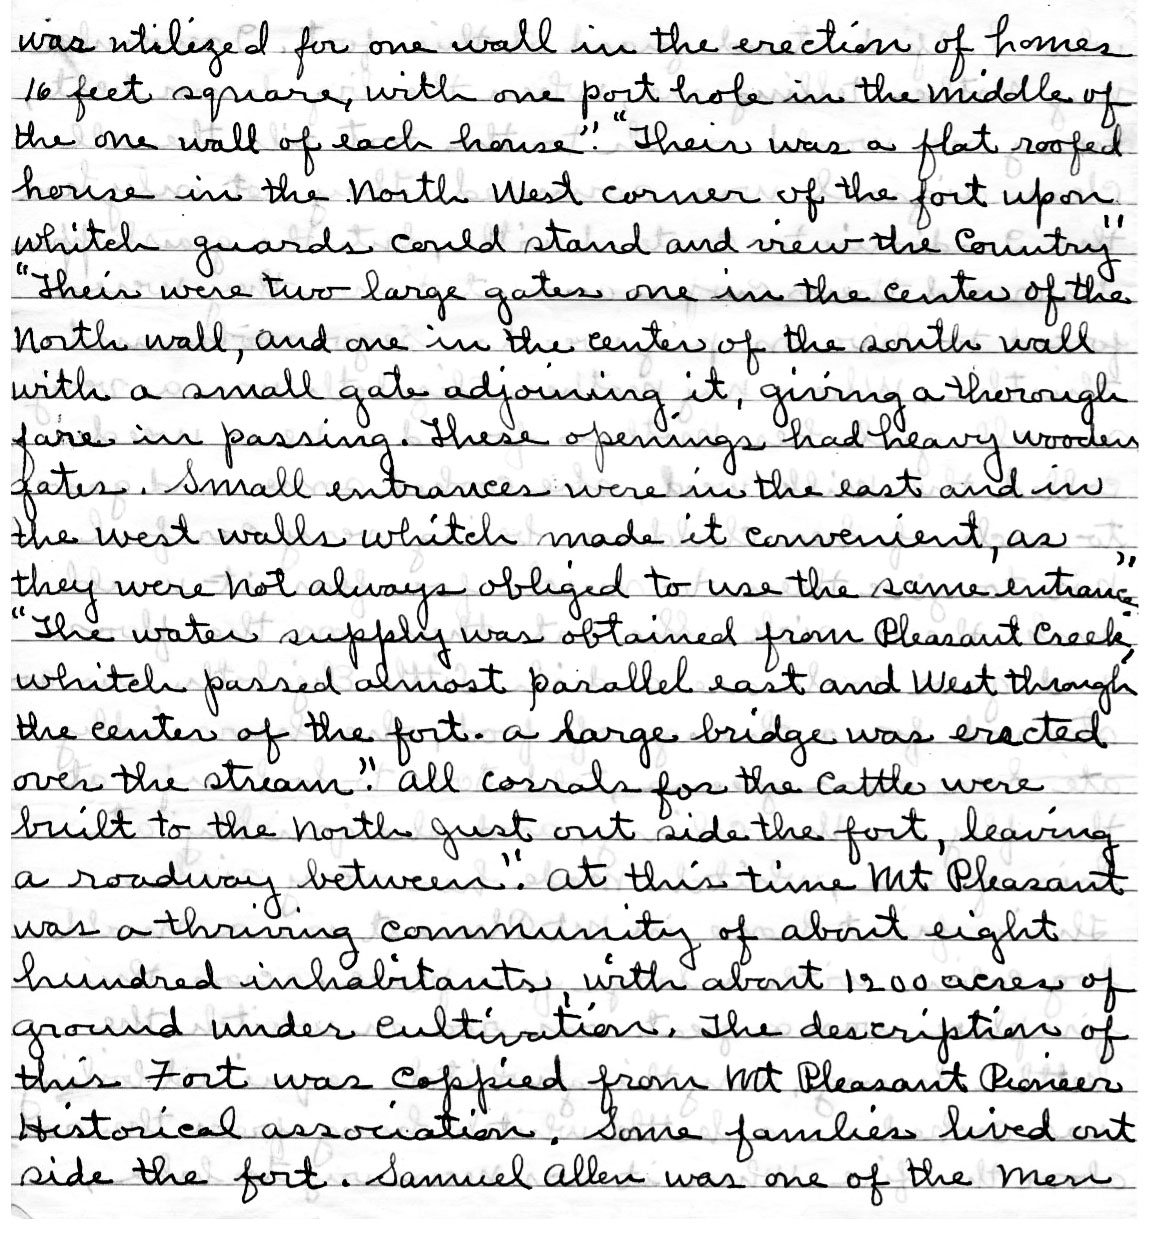 was utilized for one wall in the erection of homes
16 feet square, with one port hole in the middle of
the one wall of each house". "Their was a flat roofed
house in the North West corner of the fort upon
whitch guards could stand and view the Country"
"Their were two large gates one in the center of the
North wall, and one in the center of the south wall
with a small gate adjoining it, giving a thorough
fare in passing. These openings had heavy wooden
gates. Small entrances were in the east and in
the west walls whitch made it convenient, as
they were not always obliged to use the same entrance"
"The water supply was obtained from Pleasant Creek,
whitch passed almost parallel east and West through
the center of the fort. a large bridge was erected
over the stream". all corrals for the Cattle were
built to the North just out side the fort, leaving
a roadway between". at this time Mt Pleasant
was a thriving community of about eight
hundred inhabitants, with about 1200 acres of
ground under cultivation. The description of
this Fort was coppied from Mt Pleasant Pioneer
Historical association. Some families lived out
side the fort. Samuel Allen was one of the Men